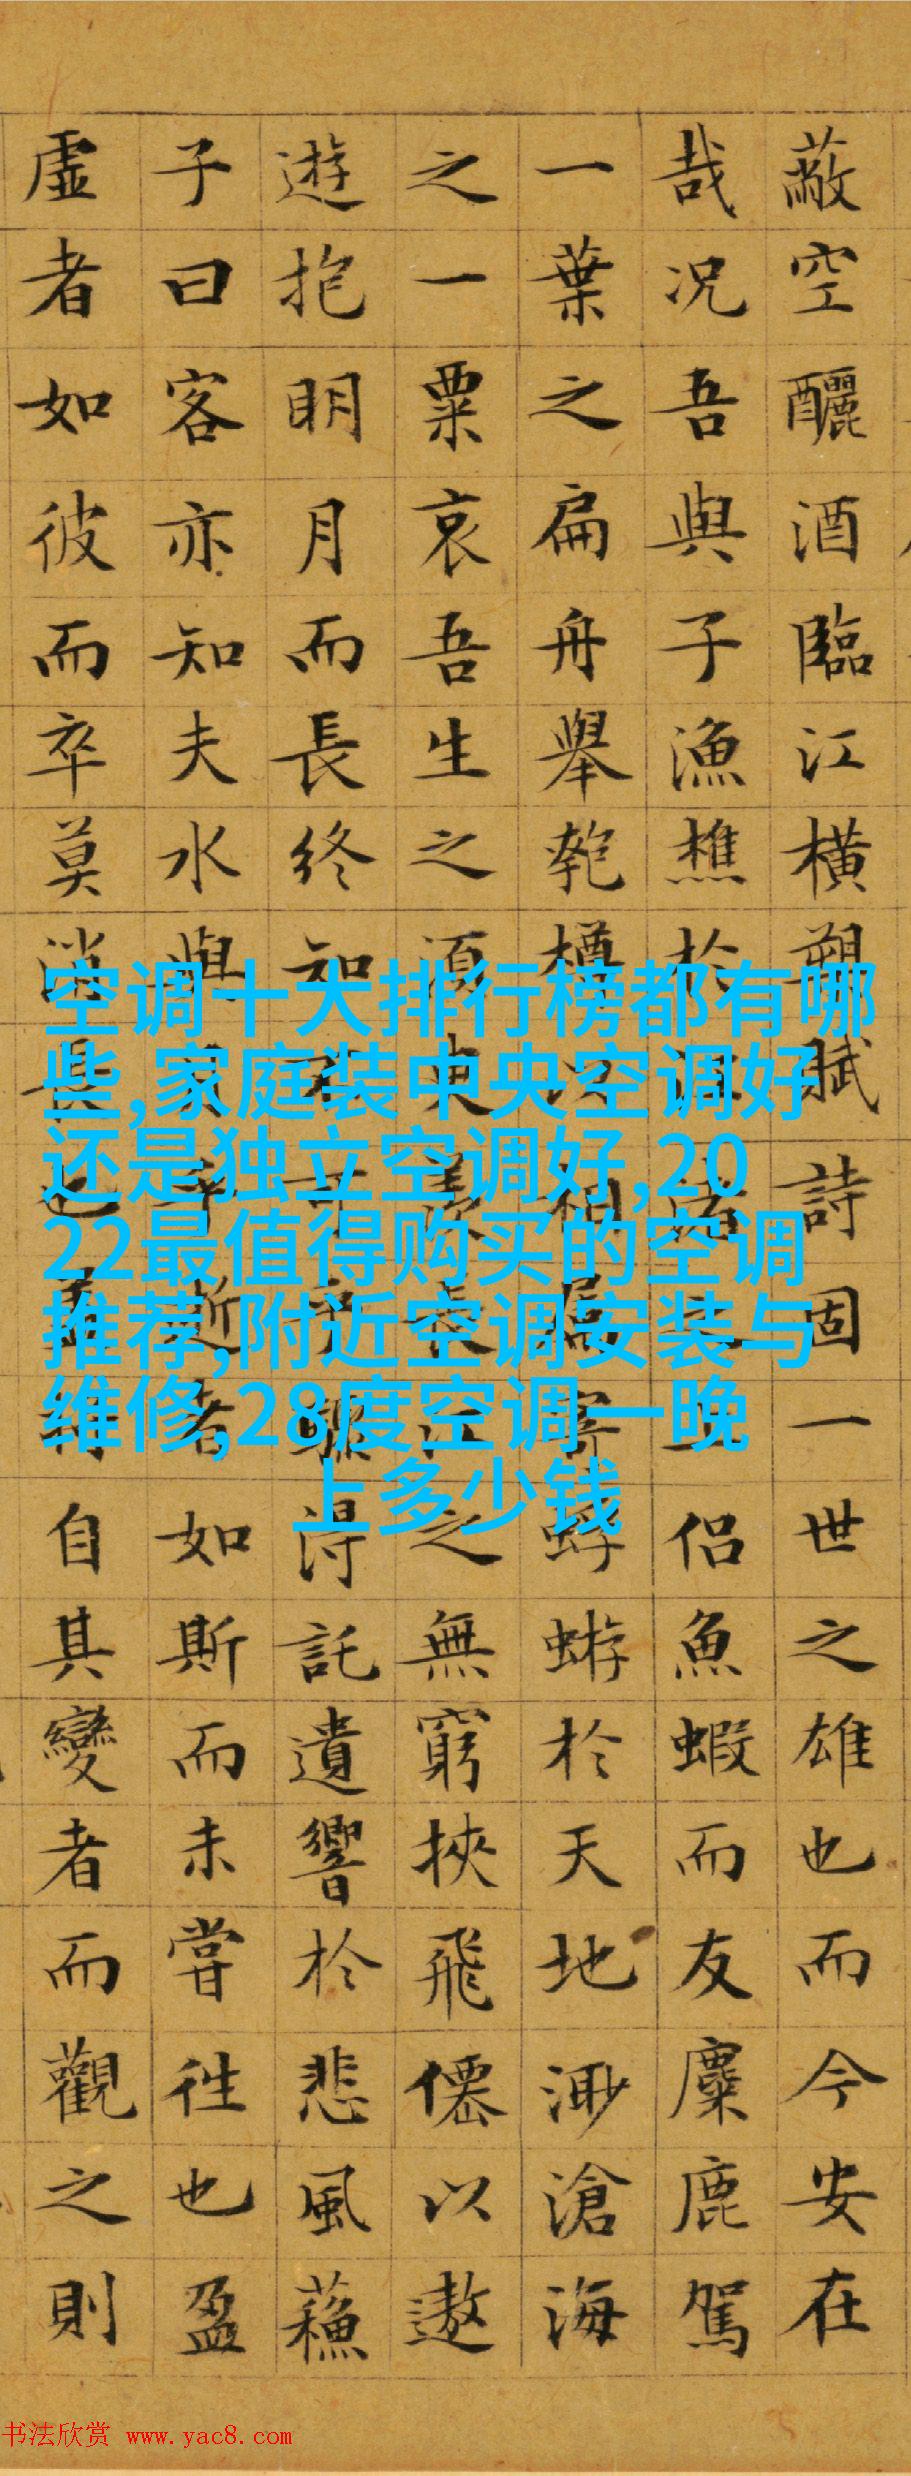 蔽空釃酒臨江橫槊賦詩固一世之雄也而今安在
哉况吾與子漁樵於江渚之上侣魚蝦而友麋鹿駕
一葉之扁舟舉匏樽以相屬寄蜉蝣於天地渺滄海
之一粟哀吾生之須臾羨長江之無窮挾飛僊以遨
遊抱明月而長終知不可乎驟得託遺響於悲風蘓
子曰客亦知夫水與月乎逝者如斯而未嘗往也盈
虛者如彼而卒莫消長也蓋將自其變者而觀之則
空调十大排行榜都有哪
些,家庭装中央空调好
还是独立空调好,20
22最值得购买的空调
推荐,附近空调安装与
维修,28度空调一晚
上多少钱
书法欣赏 www.yac8.com